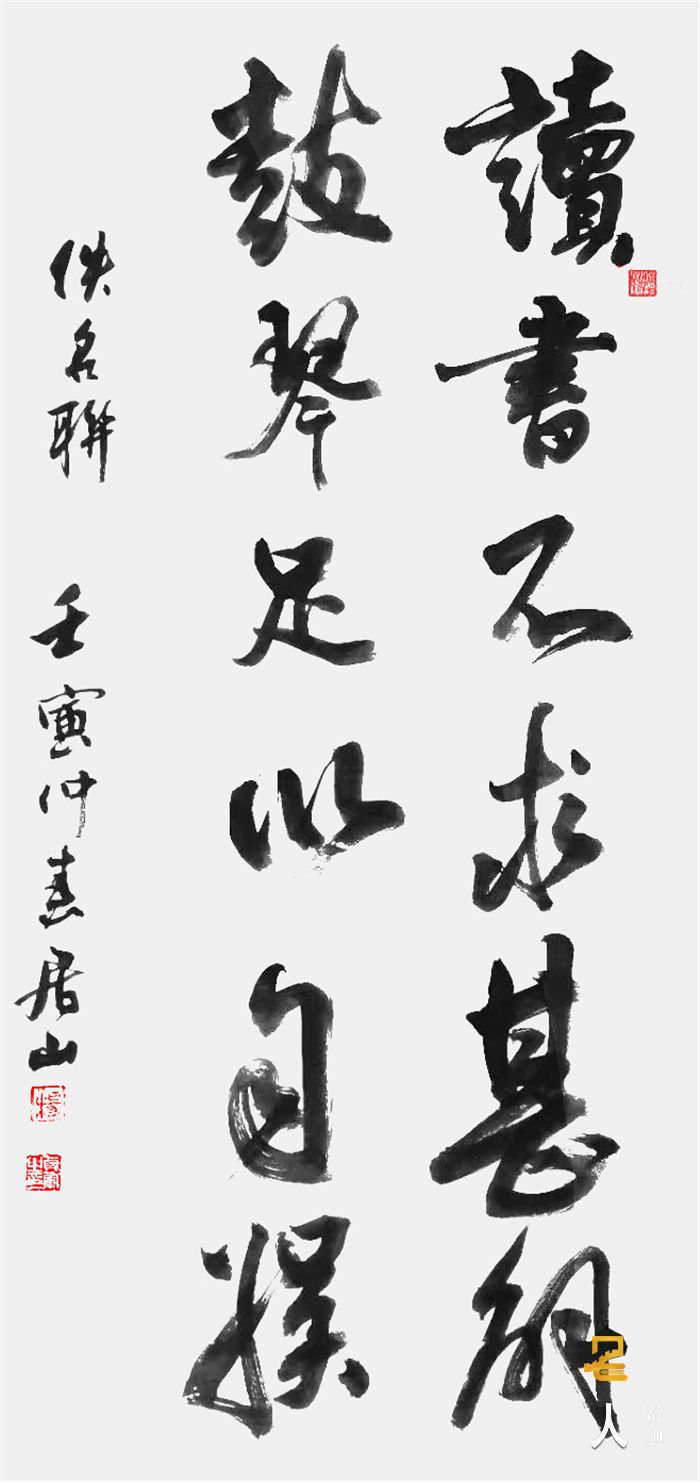 讀書不求甚解
鼓琴足以自娛
佚名聯 壬寅仲春居山
名人
辞典